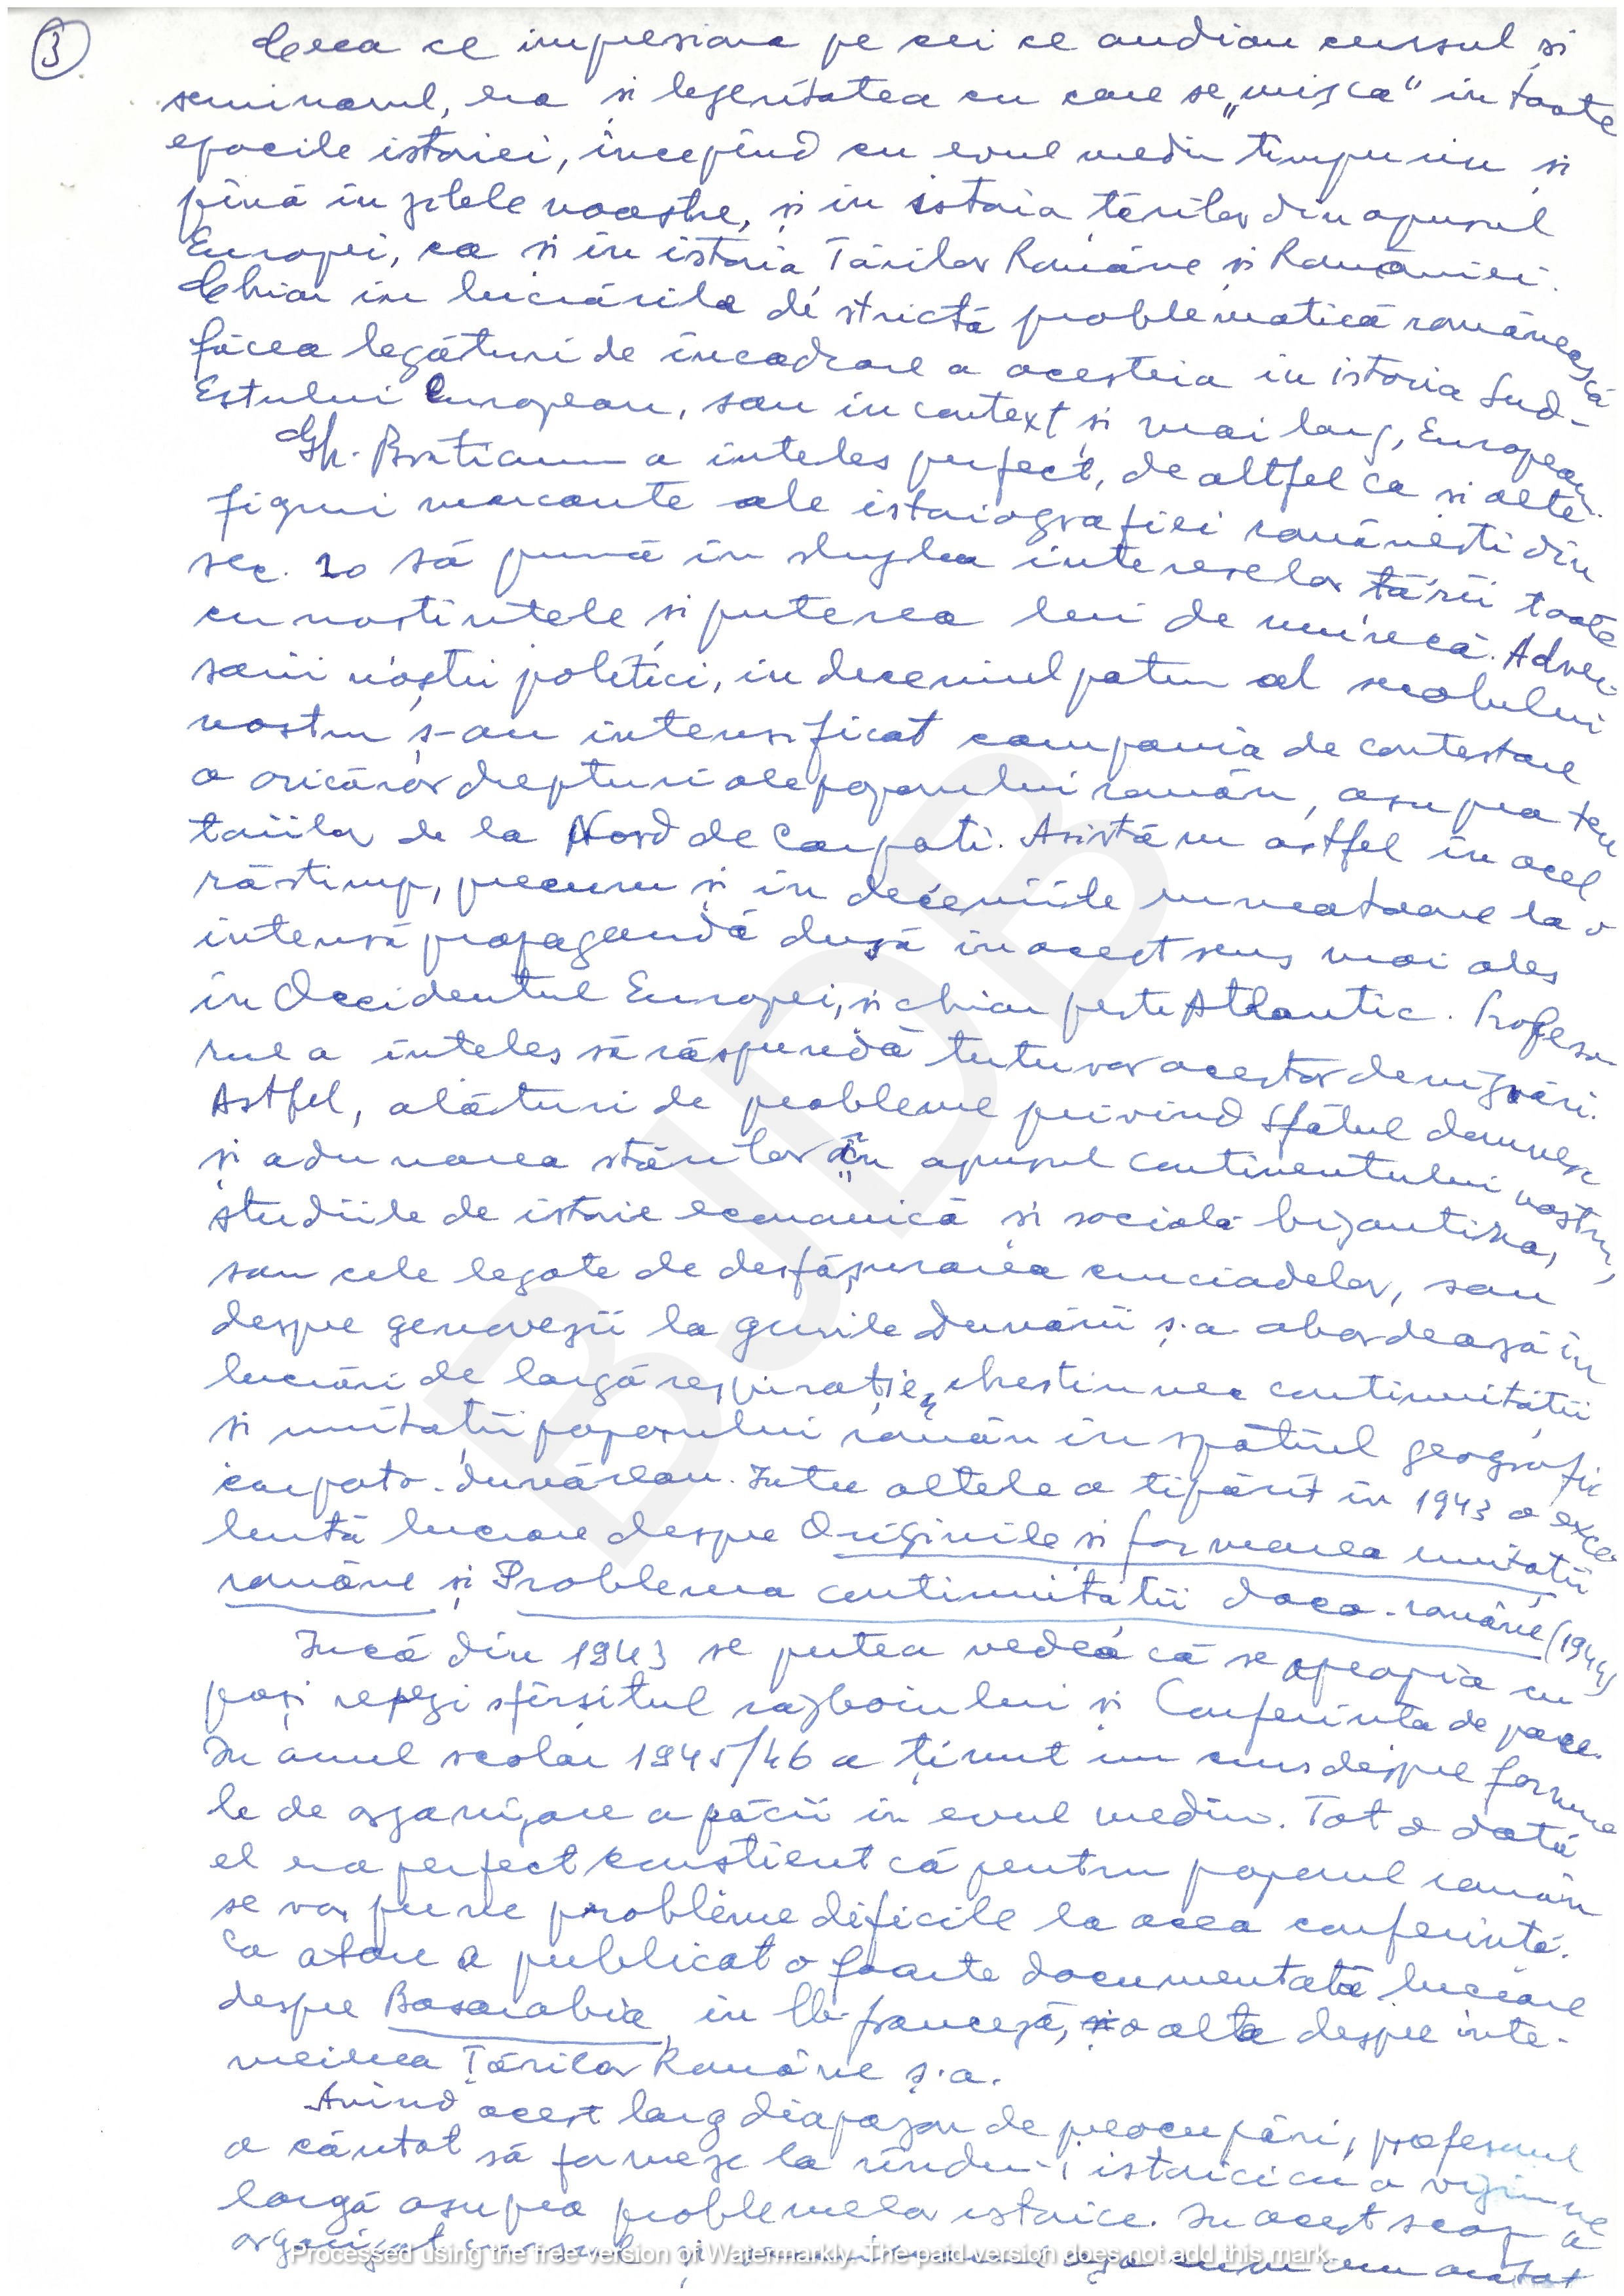 3
Ceea ce impresiona pe cei ce audiau cursul și
seminarul, era și lejeritatea cu care se „mișca" in toate
epocile istoriei, începînd cu evul mediu timpuriu și
pînă în zilele noastre, și in istoria țărilor din apusul
Europei, ca și in istoria Țărilor Române și României.
Chiar in lucrările de strictă problematică românească
făcea legături de încadrare a acesteia in istoria Sud-
Estului European, sau in context și mai larg, European.
Gh. Bratianu a inteles perfect, de altfel ca si alte
figuri marcante ale istoriografiei românești din
sec. 20 să pună în slujba intereselor tării toate
cunostintele și puterea lui de muncă. Adver-
sarii noștri politici, in deceniul patru al secolului
nostru s-au intensificat campania de contestare
a oricăror drepturi ale poporului român, asupra teri
toriilor de la Nord de Carpati. Asistăm astfel in acel
răstimp, precum și in deceniile urmatoare la o
intensă propagandă dusă in acest sens mai ales
in Occidentul Europei, si chiar peste Atlantic. Profeso-
rul a inteles să răspundă tuturor acestor denigrări.
Astfel, alături de probleme privind Sfatul domnesc
și adunarea stărilor în apusul continentului nostru,
studiile de istorie economică și socială bizantina,
sau cele legate de desfășurarea cruciadelor, sau
despre genovezii la gurile Dunării ș.a. abordează in
lucrări de largă respirație, chestiunea continuității
si unitații poporului român in spațiul geografic
carpato-dunărean. Intre altele a tipărit in 1943 o exce-
lentă lucrare despre Originile si formarea unitatii
române și Problema continuitatii daco-române (1944)
Incă din 1943 se putea vedea că se apropia cu
pași repezi sfîrsitul razboiului și Conferinta de pace.
In anul scolar 1945/46 a ținut un curs despre formu
le de organizare a păcii in evul mediu. Tot o dată
el era perfect constient că pentru poporul român
se vor pune probleme dificile la acea conferintă.
Ca atare a publicat o foarte documentată lucrare
despre Basarabia, in lb. franceză, o alta despre inte-
meierea Țărilor Române ș.a.
Avînd acest larg diapazon de preocupări, profesorul
a căutat să formeze la rîndu-i istorici cu o viziune
largă asupra problemelor istorice. In acest scop a
organizat
Processed using the free version of Watermarkly. The paid version does not add this mark.
BJDB